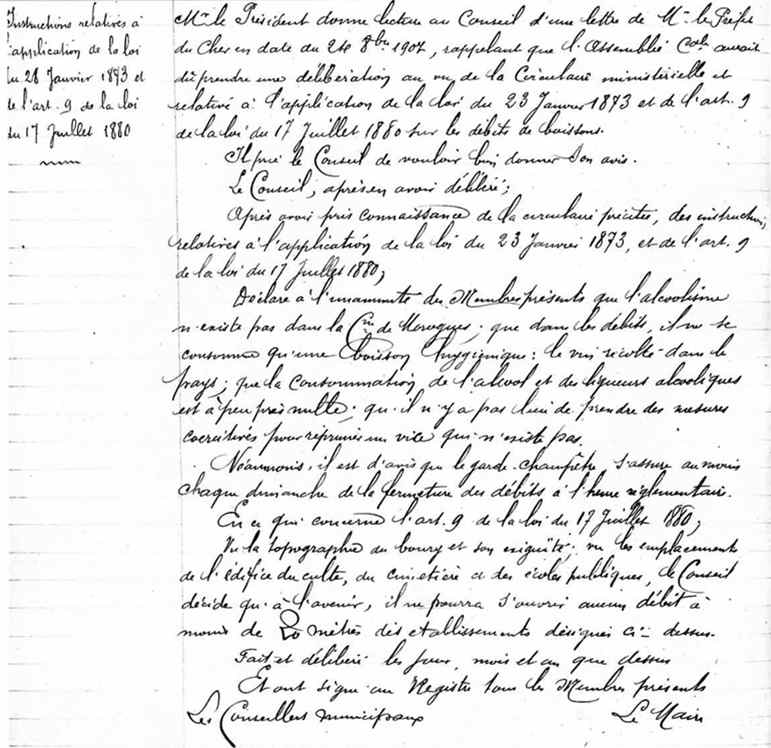 Instructions relatives à
l'application de la loi
du 23 Janvier 1873 et
de l'art. 9 de la loi
du 17 Juillet 1880
Mr le Président donne lecture au Conseil d'une lettre de Mr le Préfet
du Cher en date du 24 8bre 1907, rappelant que l'Assemblée Cale aurait
dû prendre une délibération au vu de la Circulaire ministérielle et
relative à l'application de la loi du 23 Janvier 1873 et de l'art. 9
de la loi du 17 Juillet 1880 sur les débits de boissons.
Il prie le Conseil de vouloir bien donner son avis.
Le Conseil, après en avoir délibéré;
Après avoir pris connaissance de la circulaire précitée, des instructions
relatives à l'application de la loi du 23 Janvier 1873, et de l'art. 9
de la loi du 17 Juillet 1880;
Déclare à l'unanimité des Membres présents que l'alcoolisme
n'existe pas dans la Cne de Morogues; que dans les débits, il ne se
consomme qu'une boisson hygiénique: le vin récolté dans le
pays; que la consommation de l'alcool et des liqueurs alcooliques
est à peu près nulle; qu'il n'y a pas lieu de prendre des mesures
coercitives pour réprimer un vice qui n'existe pas.
Néanmoins, il est d'avis que le garde-champêtre s'assure au moins
chaque dimanche de la fermeture des débits à l'heure réglementaire.
En ce qui concerne l'art. 9 de la loi du 17 Juillet 1880;
Vu la topographie du bourg et son exiguïté; vu les emplacements
de l'édifice du culte, du cimetière et des écoles publiques, le Conseil
décide qu'à l'avenir, il ne pourra s'ouvrir aucun débit à
moins de 20 mètres des établissements désignés ci-dessus.
Fait et délibéré les jour, mois et an que dessus
Et ont signé au Registre tous les Membres présents
Les Conseillers municipaux Le Maire